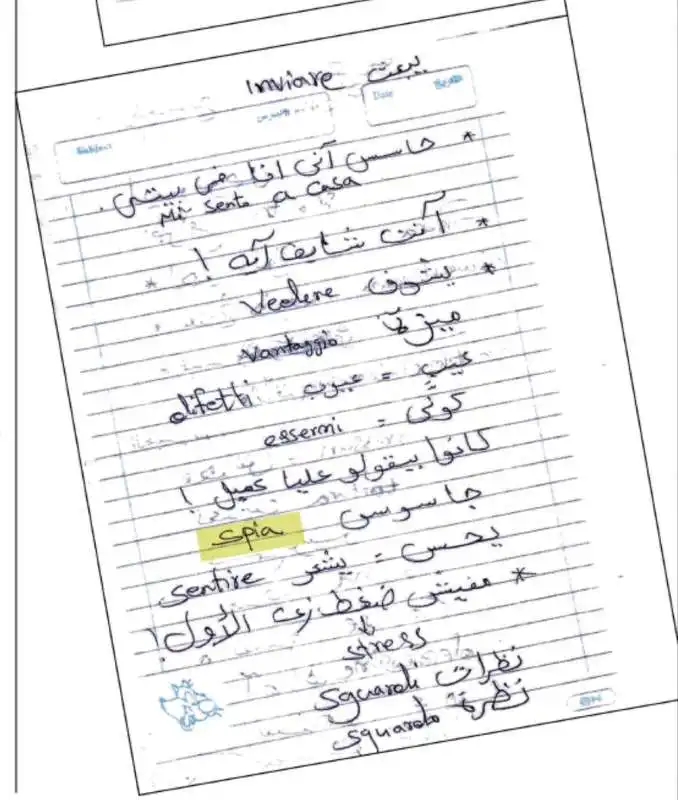 يبعت inviare
Date
* حاسس أني أنا في بيتي.
Mi sento a casa
* أنت شايف أيه !
* يشوف Vedere
ميزة Vantaggio
عيب = عيوب difetti
كوني = essermi
كانوا بيقولو عليا عميل !
جاسوس spia
يحس = يشعر sentire
* مفيش ضغط زي الأول!
↓
stress
نظرات sguardi
نظرة sguardo